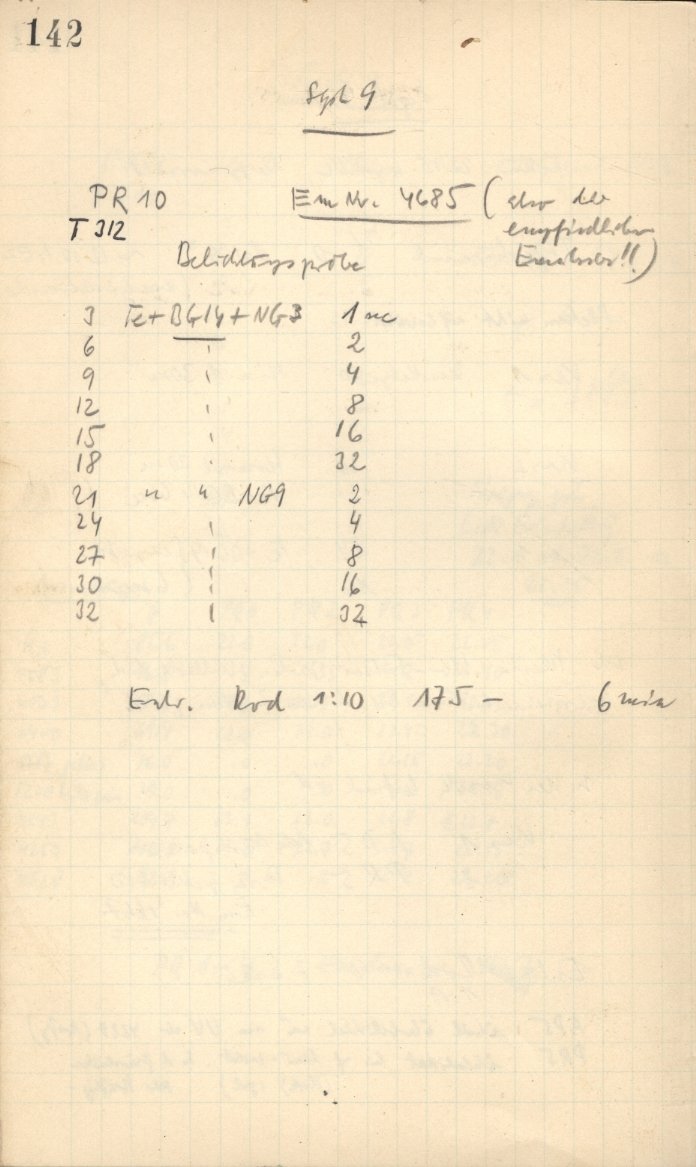 142
Spl 9
PR 10 Em Nr. 4685 (also der
T 312 empfindlichen
Belichtungsprobe Emulsion!!)
3 Fe+BG14+NG3 1 sec
6 " 2
9 " 4
12 " 8
15 " 16
18 " 32
21 " " NG9 2
24 " 4
27 " 8
30 " 16
32 " 32
Entw. Rod 1:10 175 – 6 min